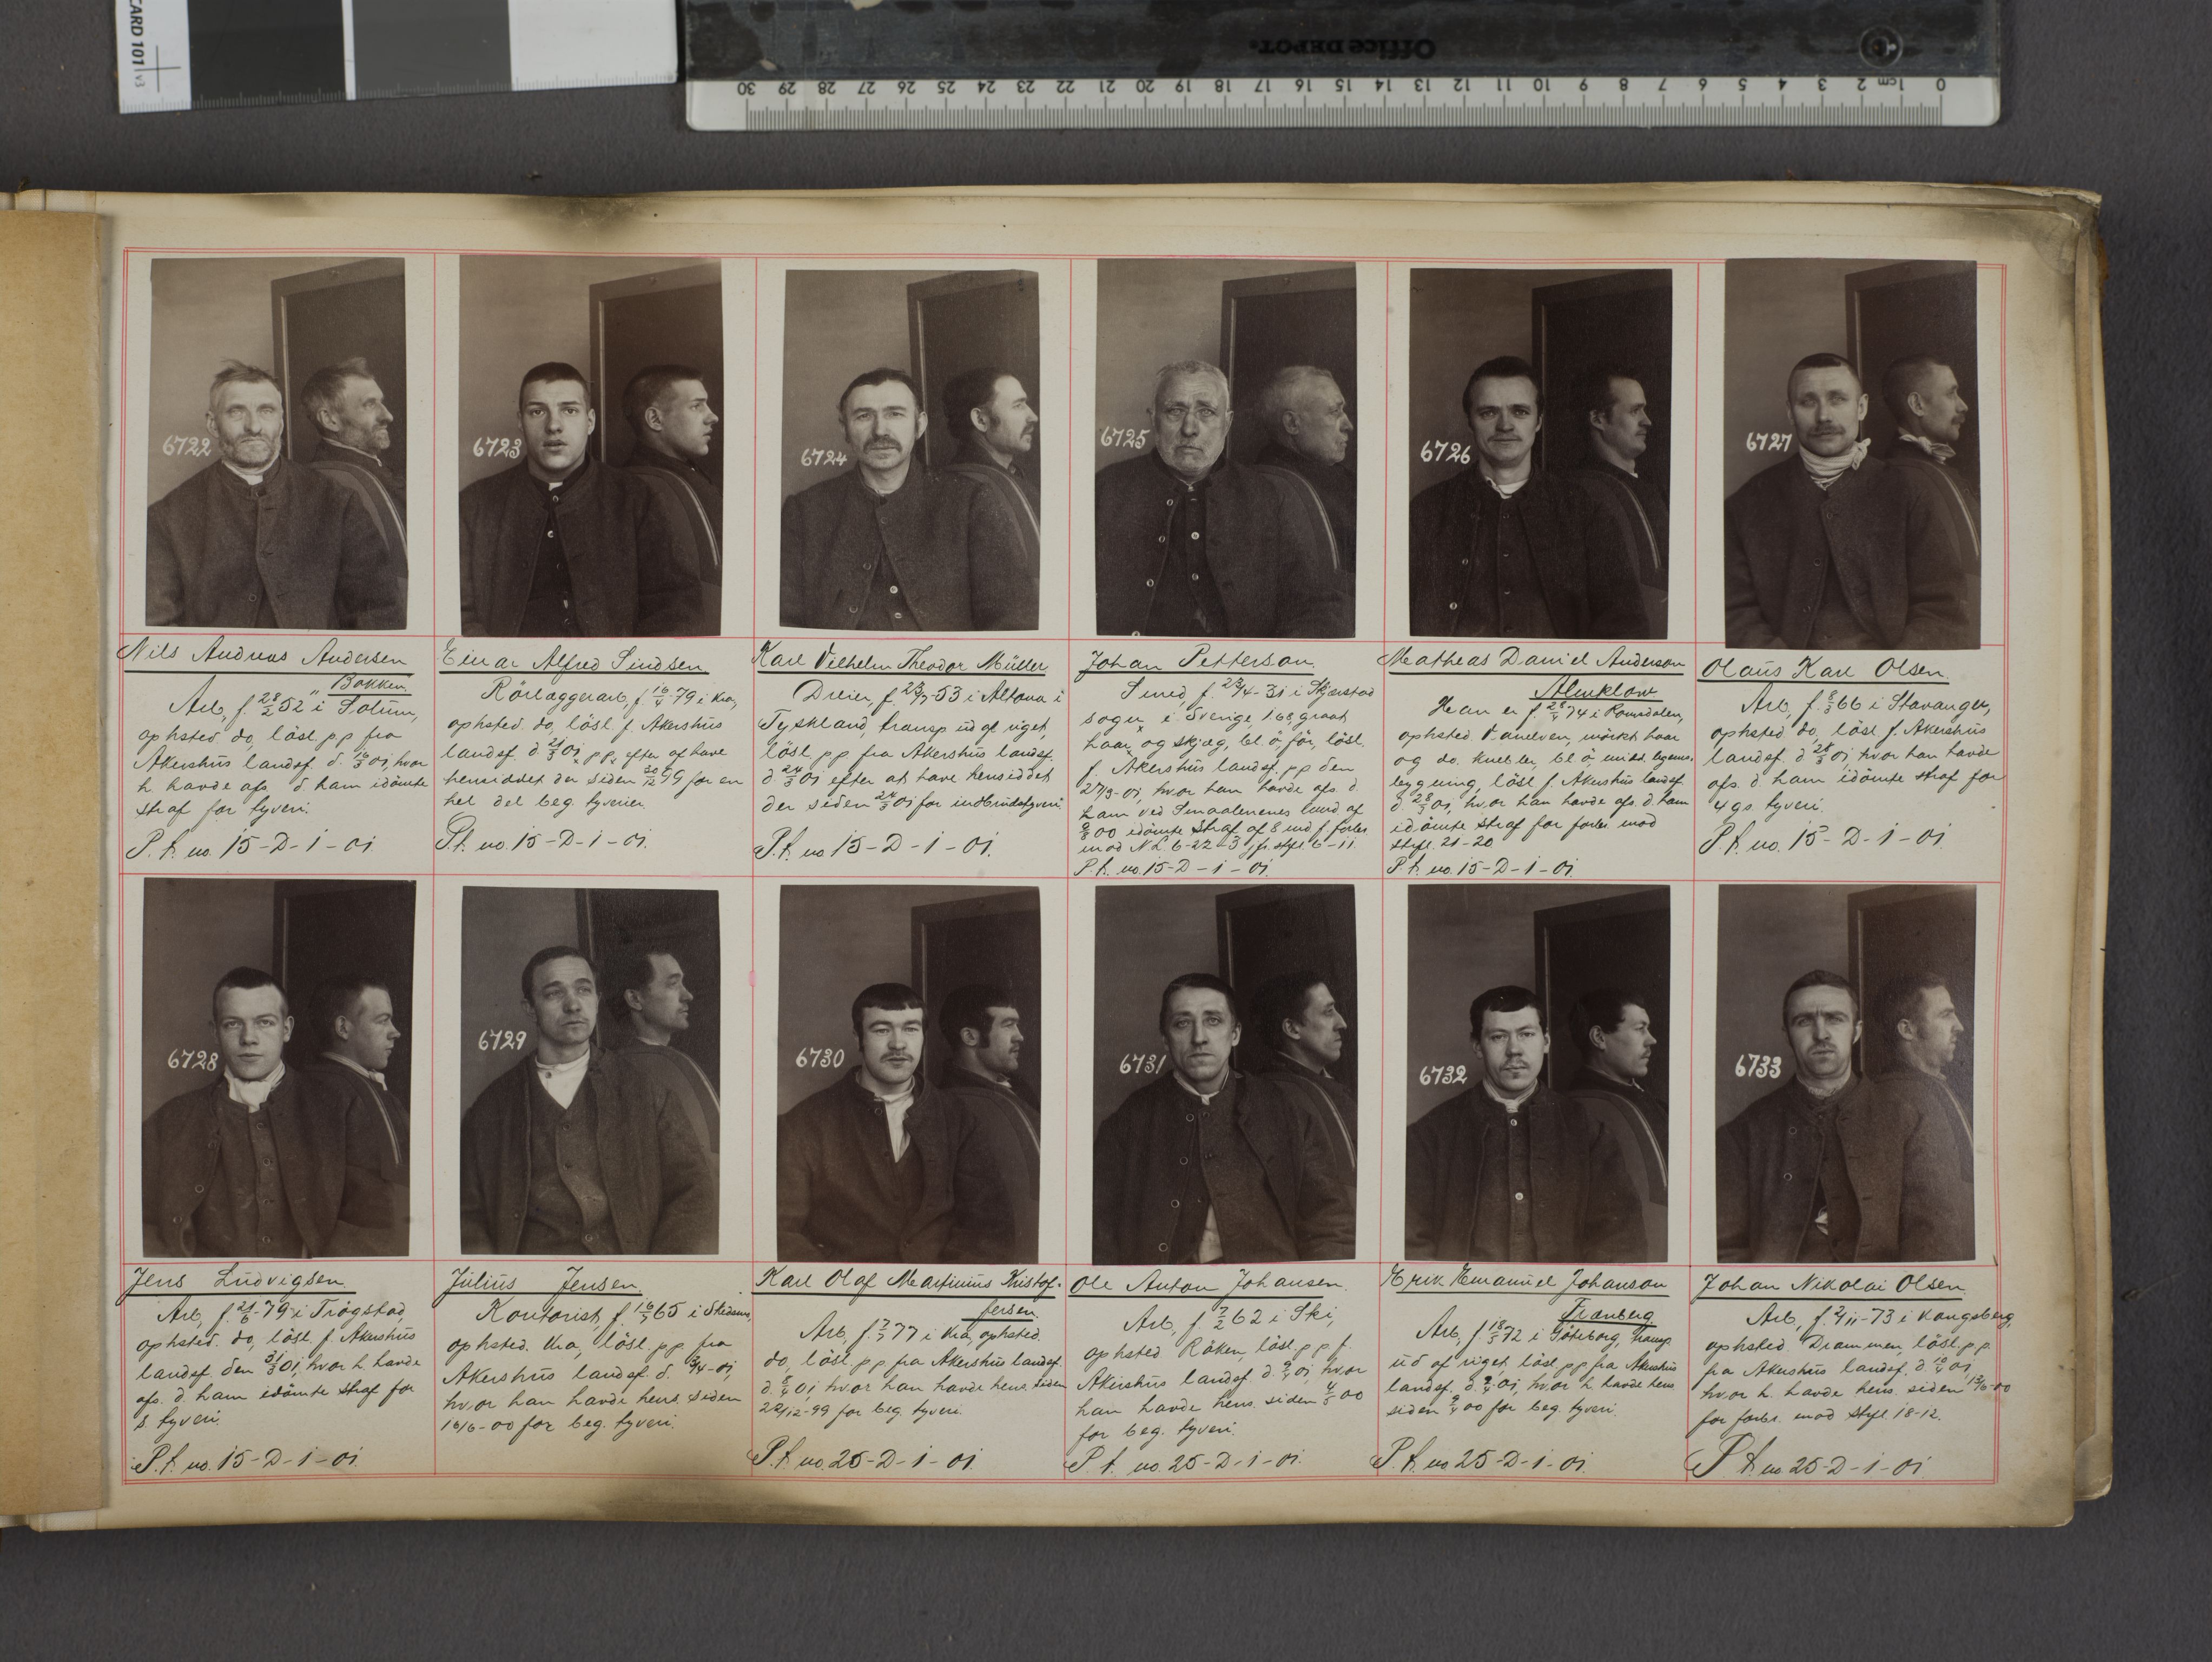 CARD 101 v3
Office DEPOT
0 1cm 2 3 4 5 6 7 8 9 10 11 12 13 14 15 16 17 18 19 20 21 22 23 24 25 26 27 28 29 30
6722
6723
6724
6725
6726
6727
Nils Andreas Andersen
" Bakken
Arb, f. 28/2 52 i Solum,
ophsted do, løsl. p p fra
Akershus landsf. d. 16/3 01, hvor
h. havde afs. d. ham idømte
straf for tyveri.
P. t. no. 15-D-1-01
Einar Alfred Sindsen
Rörlæggerarb, f. 16/4 79 i Kra,
ophsted. do, løsl. f. Akershus
landsf. d. 21/3 01, pp, efter at have
hensiddet der siden 30/12 99 for en
hel del beg. tyverier.
P.t. no. 15-D-1-01.
Karl Vilhelm Theodor Müller
Dreier, f. 23/7-53 i Altona i
Tyskland, transp. ud af riget,
løsl. p p fra Akershus landsf.
d. 24/3 01 efter at have hensiddet
der siden 24/3 01 for indbrudstyveri.
P.t. no 15-D-1-01.
Johan Petterson.
Smed, f. 23/4-31 i Skjerstad
sogn i Sverige, 168, graat
haar og skjæg, bl. ö, för, lösl.
f. Akershus landsf. p p den
27/3-01, hvor han havde afs. d.
ham ved Smaalenenes lund af
9/8 00 idømte straf af 8 md f. forbr.
mod N L 6-22-3, jfr. stfl. 6-11
P.t. no. 15-D-1-01.
Matheas Daniel Anderson
Alenklow
Han er f. 28/4 74 i Romsdalen,
ophsted. Vanelven, mörkt haar
og do. knebler, bl ö, mid. legems-
bygning, lösl f. Akershus landsf.
d. 28/3 01, hvor han havde afs. d. ham
idømte straf for forbr mod
stfl. 21-20
P.t. no. 15-D-1-01.
Olaus Karl Olsen.
Arb, f. 8/3 66 i Stavanger,
ophsted do, lösl. f. Akershus
landsf. d. 28/3 01, hvor han havde
afs. d. ham idømte straf for
4 gs. tyveri.
P t. no. 15-D-1-01
6728
6729
6730
6731
6732
6733
Jens Ludvigsen.
Arb, f. 21/6-79 i Trögstad,
ophsted. do, lösl. f. Akershus
landsf. den 31/3 01, hvor h. havde
afs. d. ham idømte straf for
s. tyveri.
P. t. no. 15-D-1-01.
Julius Jensen.
Kontorist, f. 16/7 65 i Skedsmo,
ophsted. Kra, lösl. p p fra
Akershus landsf. d. 3/4-01,
hvor han havde hens. siden
16/6-00 for beg. tyveri.
Karl Olaf Martinius Kristof-
fersen.
Arb, f. 7/7 77 i Kra, ophsted.
do, lösl. p p fra Akershus landsf.
d. 8/4 01, hvor han havde hens. siden
22/12-99 for beg. tyveri.
P.t. no. 25-D-1-01.
Ole Anton Johansen.
Arb, f. 7/2 62 i Ski,
ophsted Röken, lösl. p p f.
Akershus landsf. d. 9/4 01, hvor
han havde hens. siden 4/5 00
for beg. tyveri.
P. t. no. 25-D-1-01.
Erik Emanuel Johanson
Franberg
Arb, f. 18/5 72 i Göteborg, transp.
ud af riget, lösl. p p fra Akershus
landsf. d. 9/4 01, hvor h. havde hens.
siden 9/4 00 for beg. tyveri.
P.t. no 25-D-1-01.
Johan Nikolai Olsen.
Arb, f. 2/11-73 i Kongsberg,
ophsted. Drammen, lösl. p.p.
fra Akershus landsf. d. 10/4 01,
hvor h. havde hens. siden 13/6-00
for forbr. mod stfl. 18-12.
P t. no 25-D-1-01